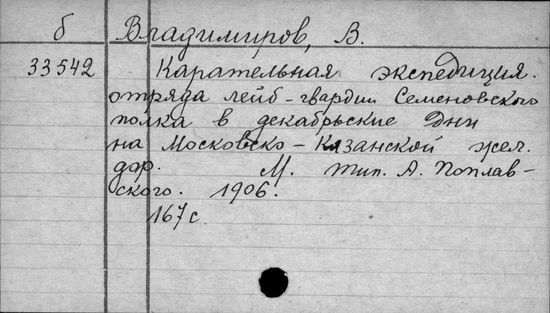 б Владимиров, В.
33542 Карательная экспедиция.
отряда лейб-гвардии Семеновского
полка в декабрьские дни
на Московско-Казанской жел.
дор. М. Тип. А. Поплав-
ского. 1906.
167 с.